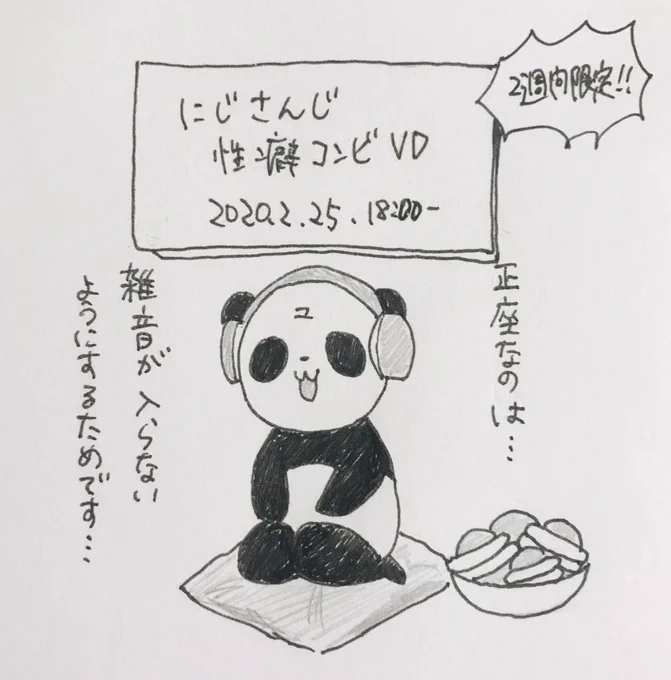 にじさんじ
性癖コンビVD
2020.2.25.18:00-
2週間限定!!
正座なのは…
雑音が入らない
ようにするためです…
ユ